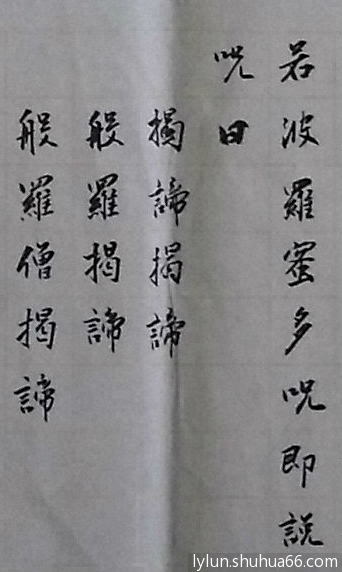 若波羅蜜多呪即説
呪曰
揭諦揭諦
般羅揭諦
般羅僧揭諦
lylun.shuhua66.com